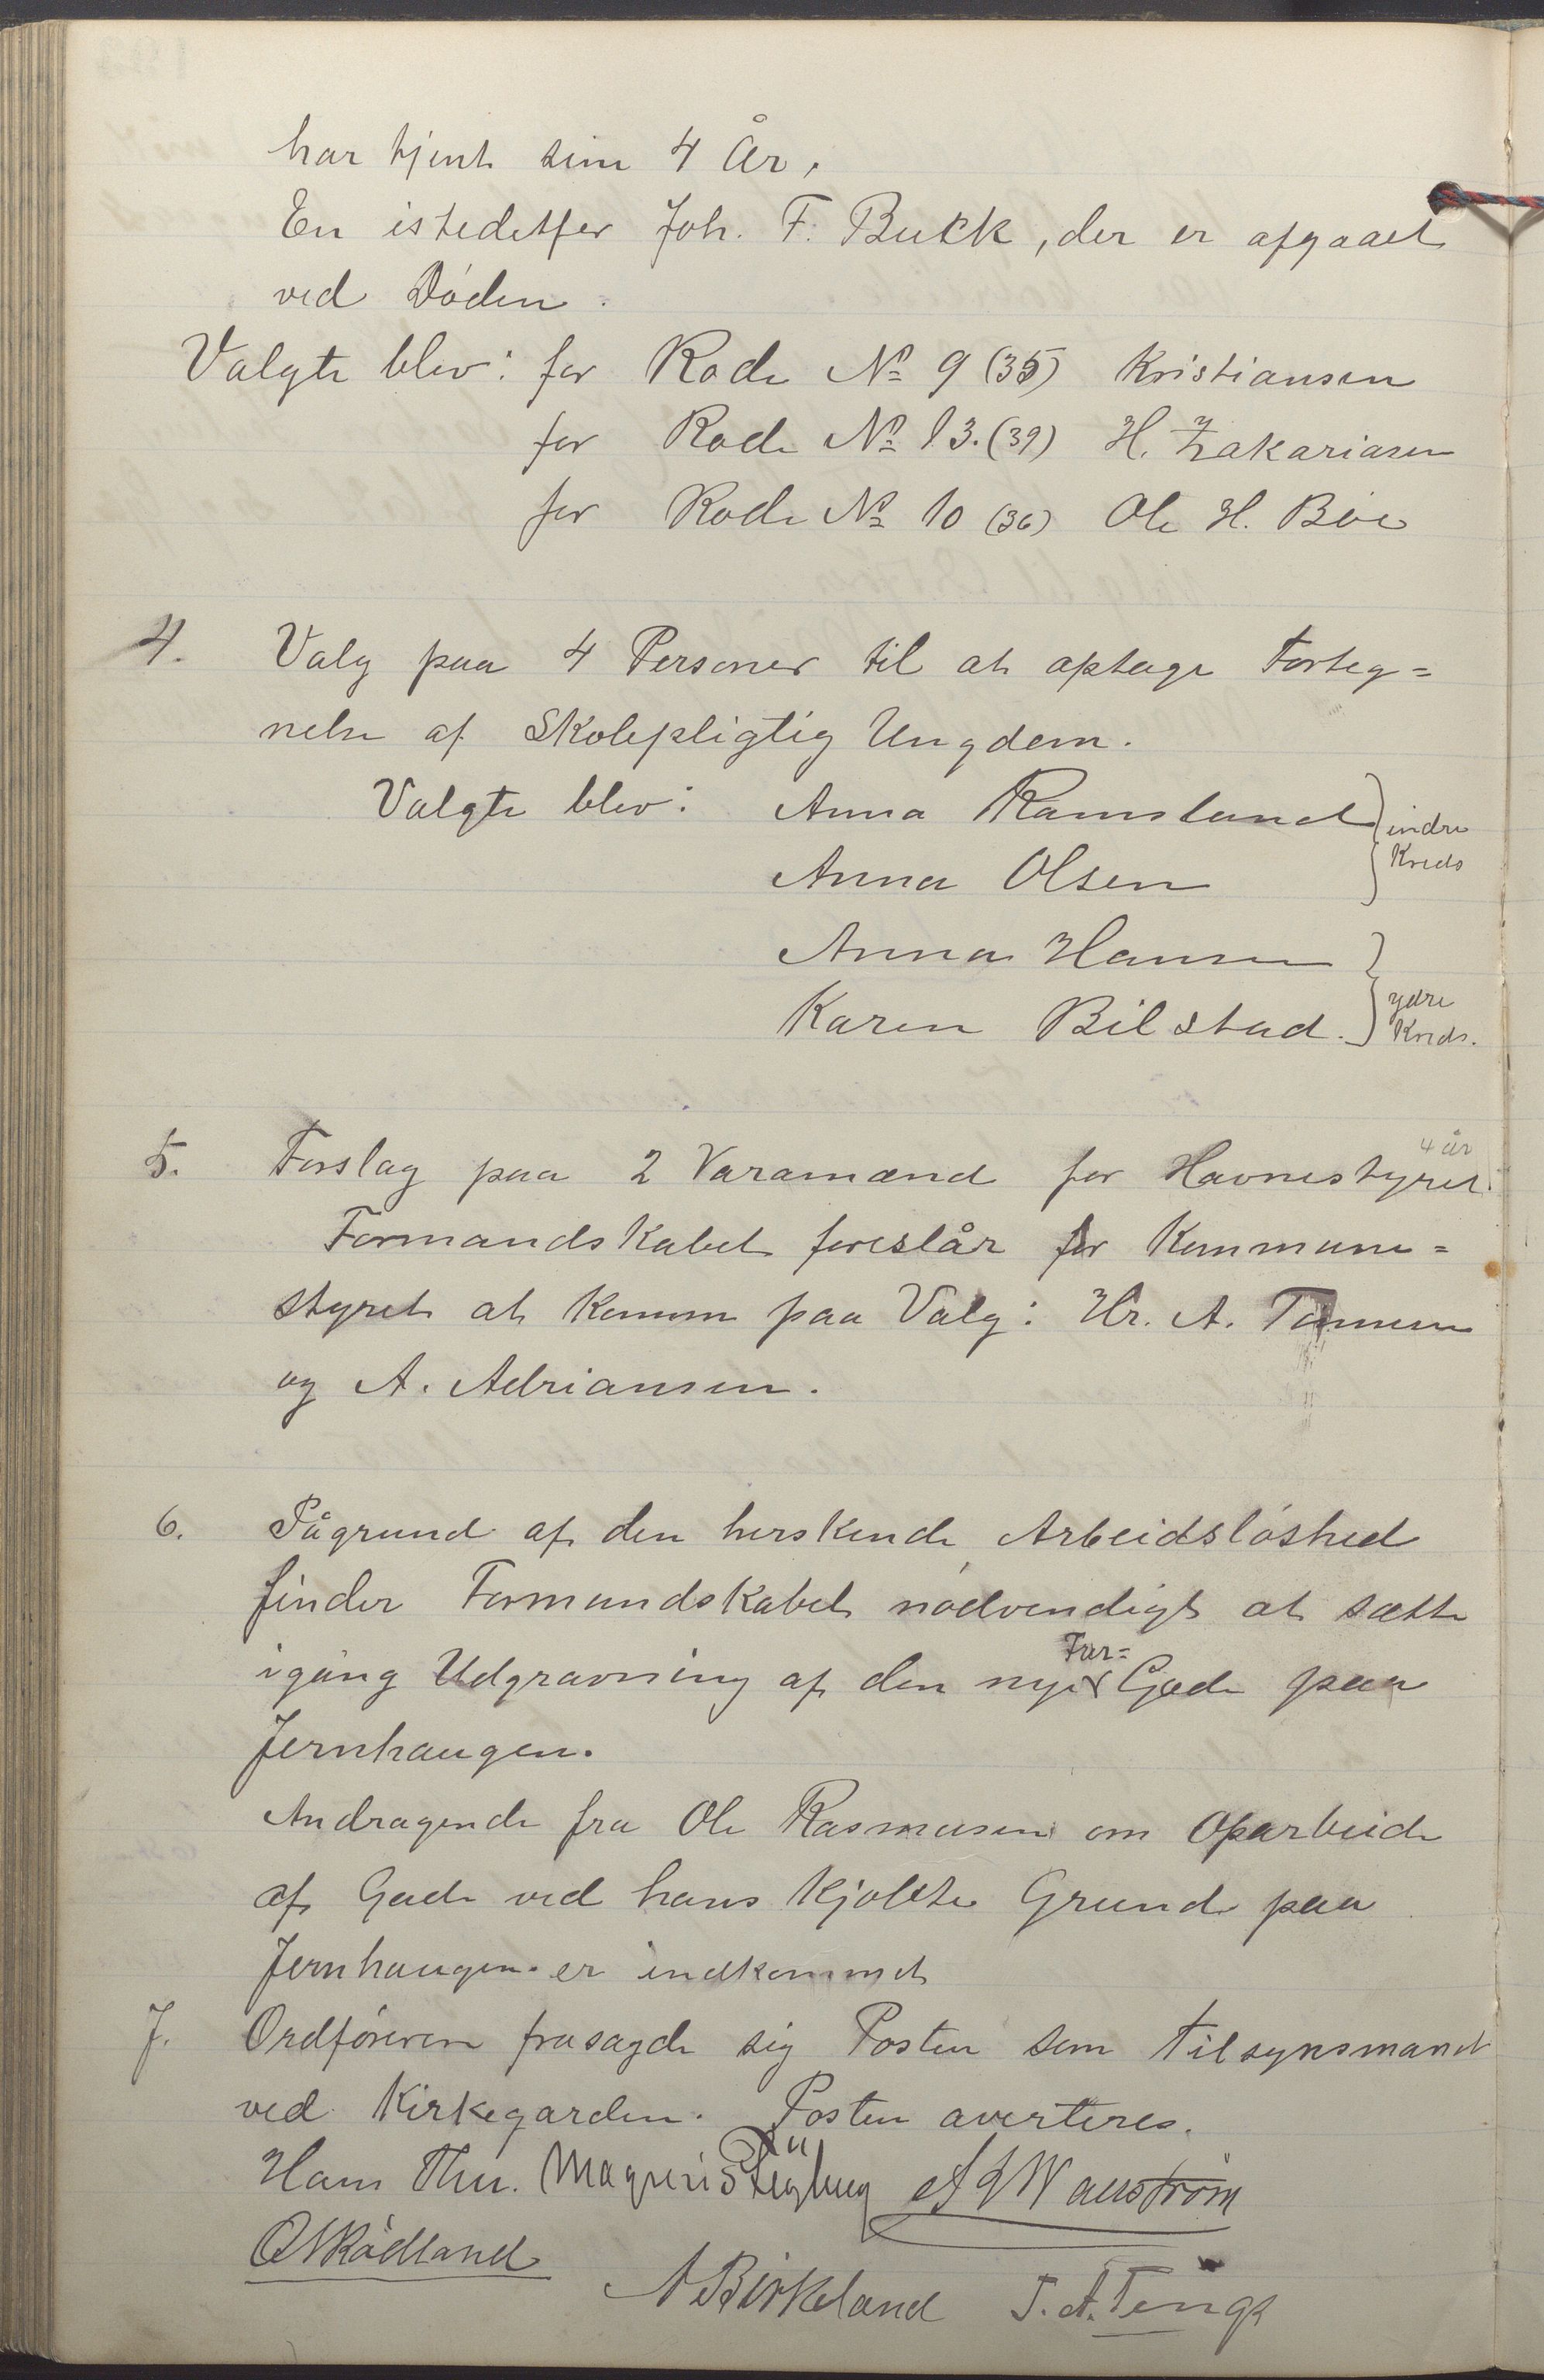 har tjent sine 4 År,
En istedetfor Joh. F. Buck, der er afgaaet
ved Døden.
Valgte blev: for Rode № 9 (35) Kristiansen
for Rode № 13. (39) H. Zakariasen
for Rode № 10 (36) Ole H. Bøe
4. Valg paa 4 Personer til at optage Forteg=
nelse af Skolepligtig Ungdom.
Valgte blev: Anna Ramsland } indre
Anna Olsen } Kreds
Anna Hansen } ydre
Karen Bilstad. } Kreds.
4 år
5. Forslag paa 2 Varamænd for Havnestyret.
Formandskabet foreslår for Kommune=
styret at komme paa Valg: Hr. A.
og A. Adriansen.
6. Pågrund af den herskende Arbeidsløshed
finder Formandskabet nødvendigt at sætte
igang Udgravning af den nye Tvær= Gade paa
Jernhaugen.
Andragende fra Ole Rasmusen om Oparbeide
af Gade ved hans kjøbte Grund paa
Jernhaugen er indkommet
7. Ordføreren frasagde sig Posten som Tilsynsmand
ved Kirkegården. Posten averteres.
Hans Thu. Magnus
O Rådland A Birkeland T. A. Tengs